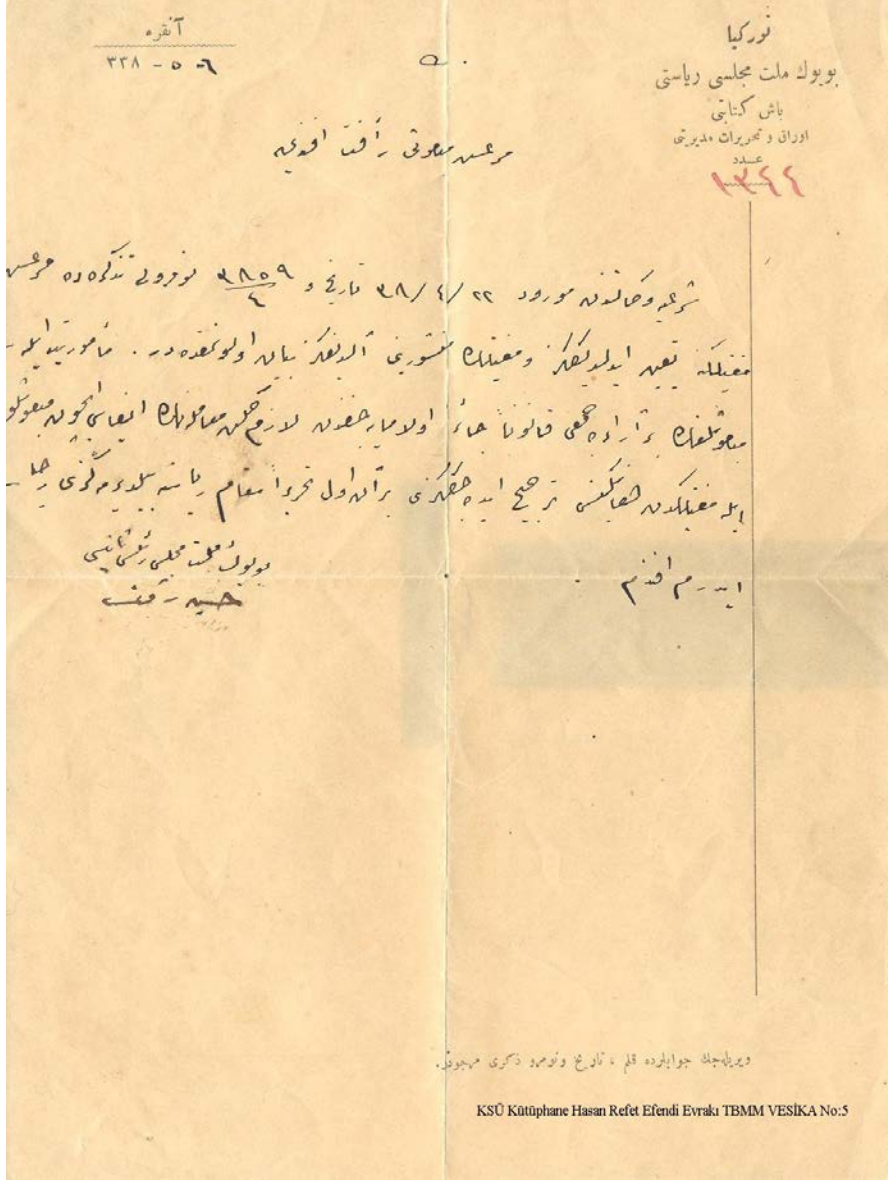 توركيا
بويوك ملت مجلسى رياستى
باش كتابتى
اوراق و تحريرات مديريتى
عدد
١٣٤٤
آنقره
٦ - ٥ - ٣٣٨
مرعش مبعوثى رأفت افندى يه
شرعيه وكالتندن مورود ٢٢/٤/٣٨ تاريخ و ٣٨٥٩/٤ نومرولى تذكره ده مرعش
مفتيلكنه تعيين ايدلديككز و مفتيلك منشورينى آلديغكز بيان اولونمقده در. مأموريت ايله
مبعوثلغك بر آراده جمعى قانوناً جائز اولاميه جغندن لازم كلن معامله نك ايفاسى ايچون مبعوثلق
ايله مفتيلكدن هانكيسنى ترجيح ايده جككزى بر آن اول تحريراً مقام رياسته بيلديرمه كزى رجا
ايدرم افندم
بويوك ملت مجلسى رئيس ثانيسى
حسين رؤف
ويريله جك جوابلرده قلم ، تاريخ ونومرو ذكرى مرجودر.
KSÜ Kütüphane Hasan Refet Efendi Evrakı TBMM VESİKA No:5